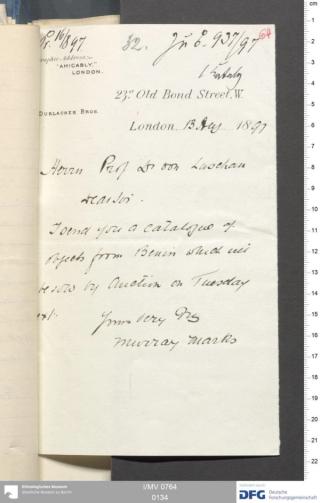 Pr. 16/8 97
32.
Zu E. 937/97
64
Telegraphic Address:—
"AMICABLY,"
LONDON.
1 Katalg
23A Old Bond Street, W.
DURLACHER BROS.
London, 13 Aug 1897
Herrn Prof Dr von Luschan
Dear Sir.
I send you a catalogue of
objects from Benin which will
be sold by Auction on Tuesday
next.
Yours very try
Murray Marks
cm
1
2
3
4
5
6
7
8
9
10
11
12
13
14
15
16
17
18
19
20
21
22
Ethnologisches Museum
Staatliche Museen zu Berlin
I/MV 0764
0134
DFG
Deutsche
Forschungsgemeinschaft